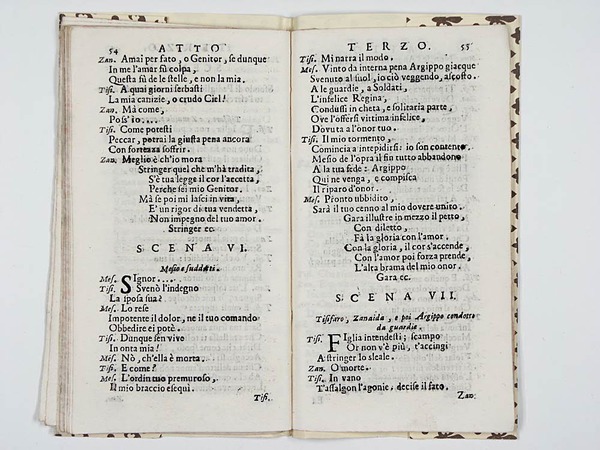 54 ATTO
Zan. Amai per fato, o Genitor, se dunque
In me l'amar fù colpa,
Questa fù de le stelle, e non la mia.
Tiſ. A quai giorni ſerbasti
La mia canizie, o crudo Ciel!
Zan. Mà come,
Poſs'io....
Tiſ. Come potesti
Peccar, potrai la giusta pena ancora
Con fortezza soffrir.
Zan. Meglio è ch'io mora
Stringer quel che m'hà tradita,
S'è tua legge il cor l'accetta,
Perche sei mio Genitor.
Mà se poi mi lasci in vita,
E' un rigor di tua vendetta,
Non impegno del tuo amor.
Stringer ec.
SCENA VI.
Mesio e suddetti.
Mes. SIgnor....
Tiſ. Svenò l'indegno
La sposa sua?
Mes. Lo rese
Impotente il dolor, ne il tuo comando
Obbedire ei potè.
Tiſ. Dunque sen vive
In onta mia!
Mes. Nò, ch'ella è morta.
Tiſ. E come?
Mes. L'ordin tuo premuroso,
Il mio braccio eseguì.
Tiſ.
TERZO. 55
Tiſ. Mi narra il modo.
Mes. Vinto da interna pena Argippo giacque
Svenuto al suol, io ciò veggendo, ascosto
A le guardie, a Soldati,
L'infelice Regina,
Condussi in cheta, e solitaria parte,
Ove l'offersi vittima infelice,
Dovuta a l'onor tuo.
Tiſ. Il mio tormento,
Comincia a intepidirsi: io son contento.
Mesio de l'opra al fin tutto abbandono
A la tua fede: Argippo
Qui ne venga, e compisca
Il riparo d'onor.
Mes. Pronto ubbidito,
Sarà il tuo cenno al mio dovere unito.
Gara illustre in mezzo il petto,
Con diletto,
Fà la gloria con l'amor.
Con la gloria, il cor s'accende,
Con l'amor poi forza prende,
L'alta brama del mio onor.
Gara ec.
SCENA VII.
Tisifaro, Zanaida, e poi Argippo condotto
da guardie.
Tiſ. FIglia intendesti; scampo
Or non v'è più, t'accingi
A stringer lo sleale.
Zan. O morte.
Tiſ. In vano
T'assalgon l'agonie; decise il fato.
Zan.